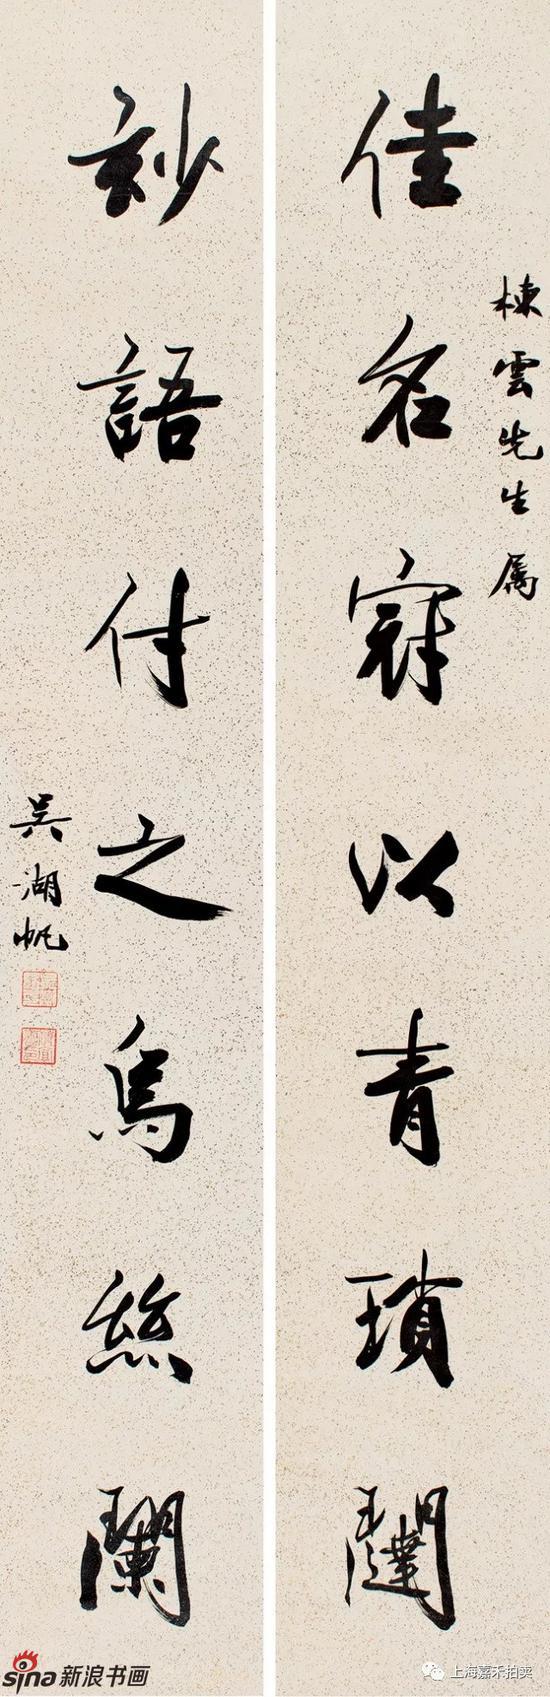 佳名以青瑣闥
棟雲先生属
玅語付之烏絲闌
吳湖帆
sina新浪书画
上海嘉禾拍卖